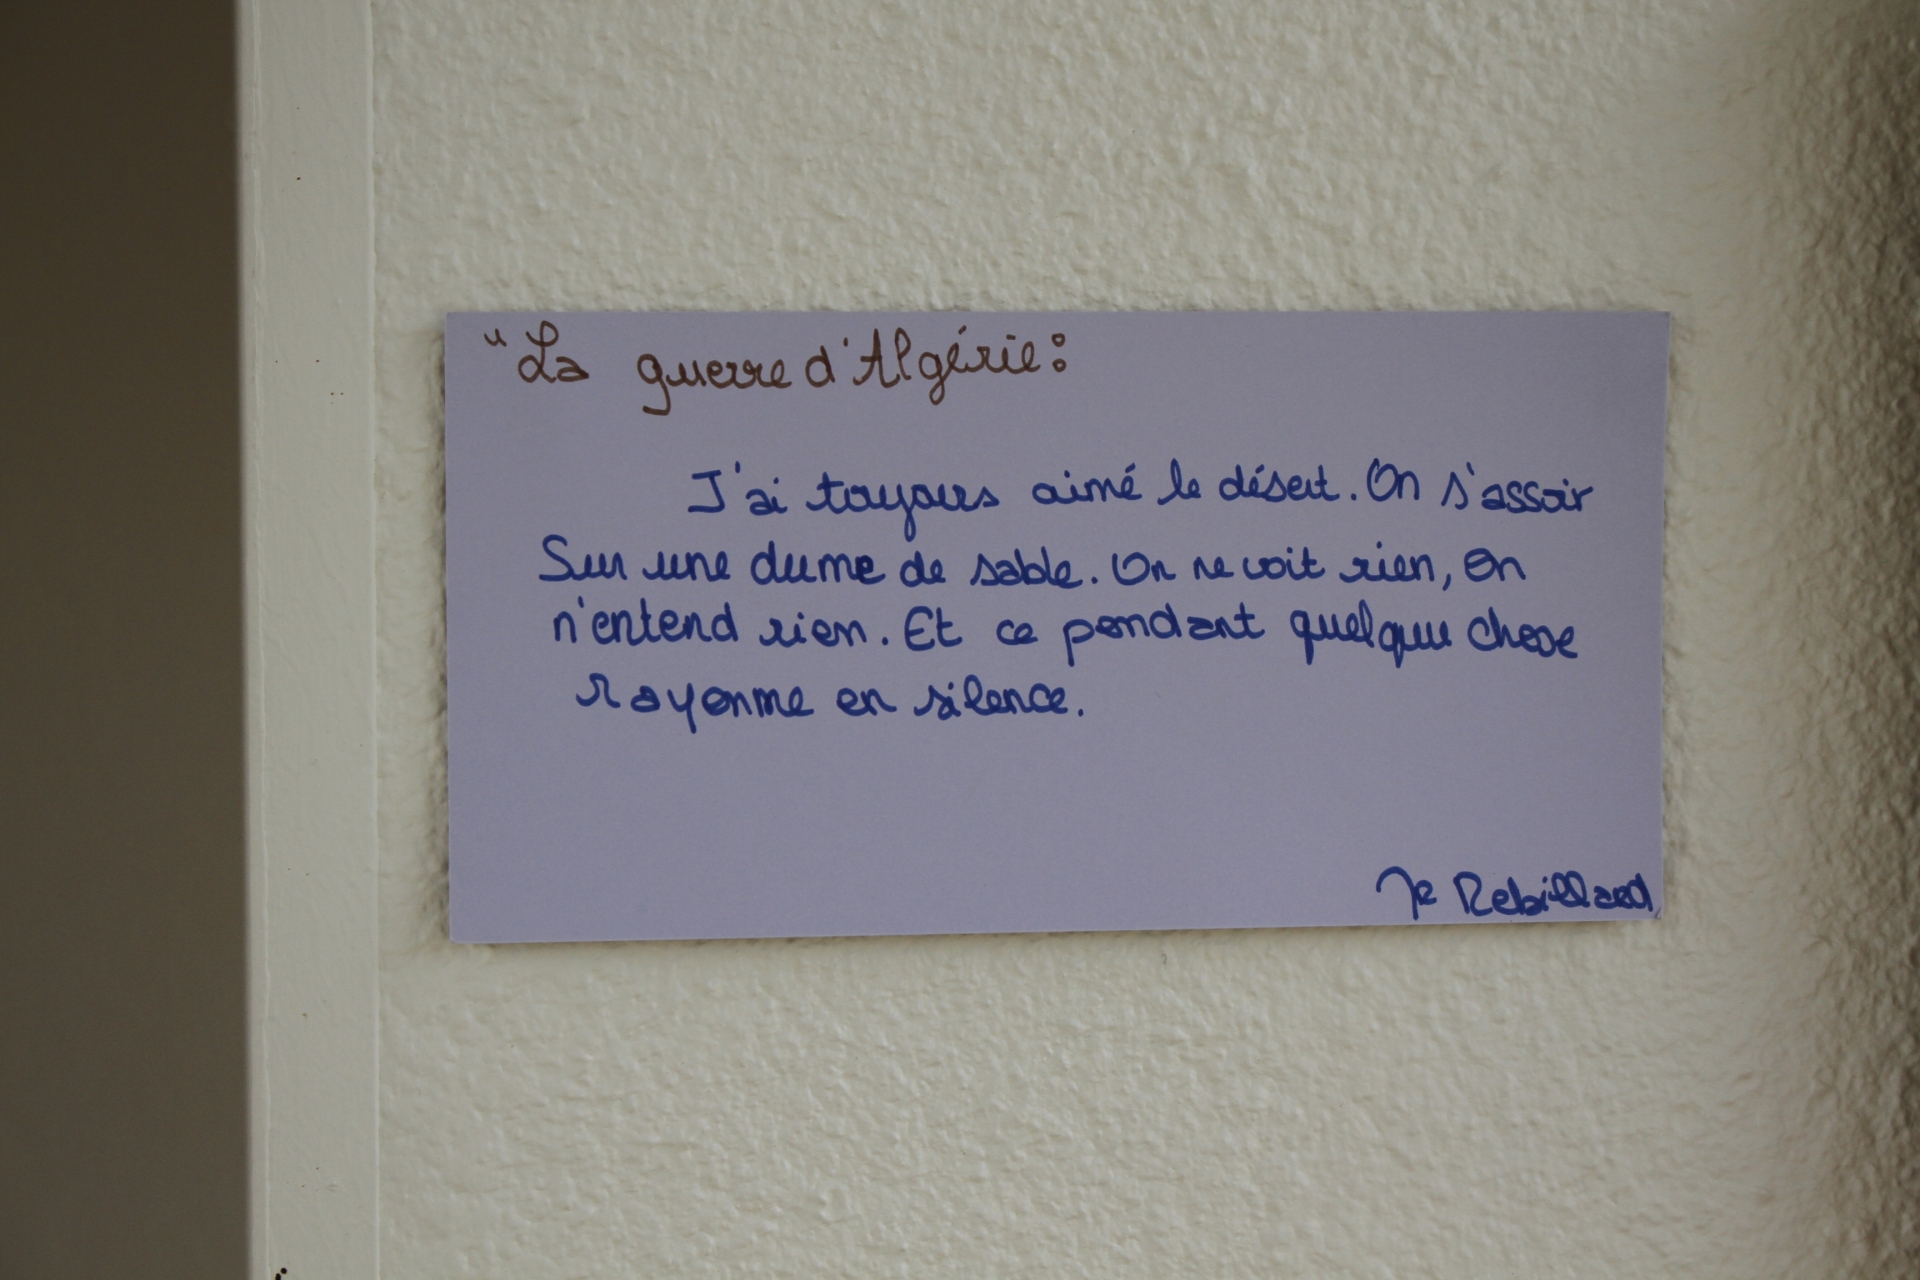 "La guerre d'Algérie:
J'ai toujours aimé le désert. On s'assoir
Sur une dume de sable. On ne voit rien, on
n'entend rien. Et ce pendant quelque chose
rayonme en silence.
Mr Rebillard